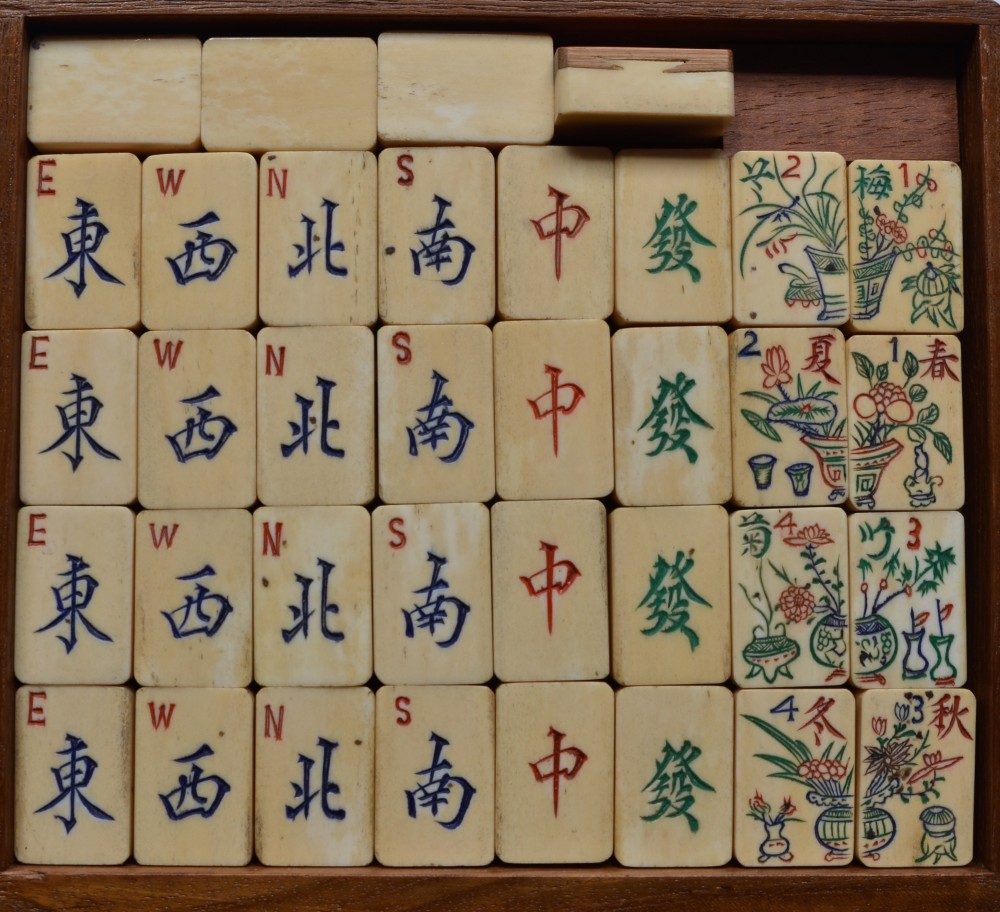 E W N S 兰 2 梅 1
東 西 北 南 中 發
E W N S 2 夏 1 春
東 西 北 南 中 發
E W N S 菊 4 竹 3
東 西 北 南 中 發
E W N S 4 冬 3 秋
東 西 北 南 中 發